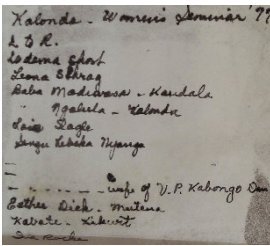 Kalonda - Women's Seminar '77
L to R.
Lodema Short
Leona Schrag
Baba Madiwasa - Kandala
" Ngalula - Kalonda
Lois Slagle
Lengu Lebaka Nyanga
- wife of V.P. Kabongo Dan
Esther Dick - Mutena
Kabate -
Ina Rocke